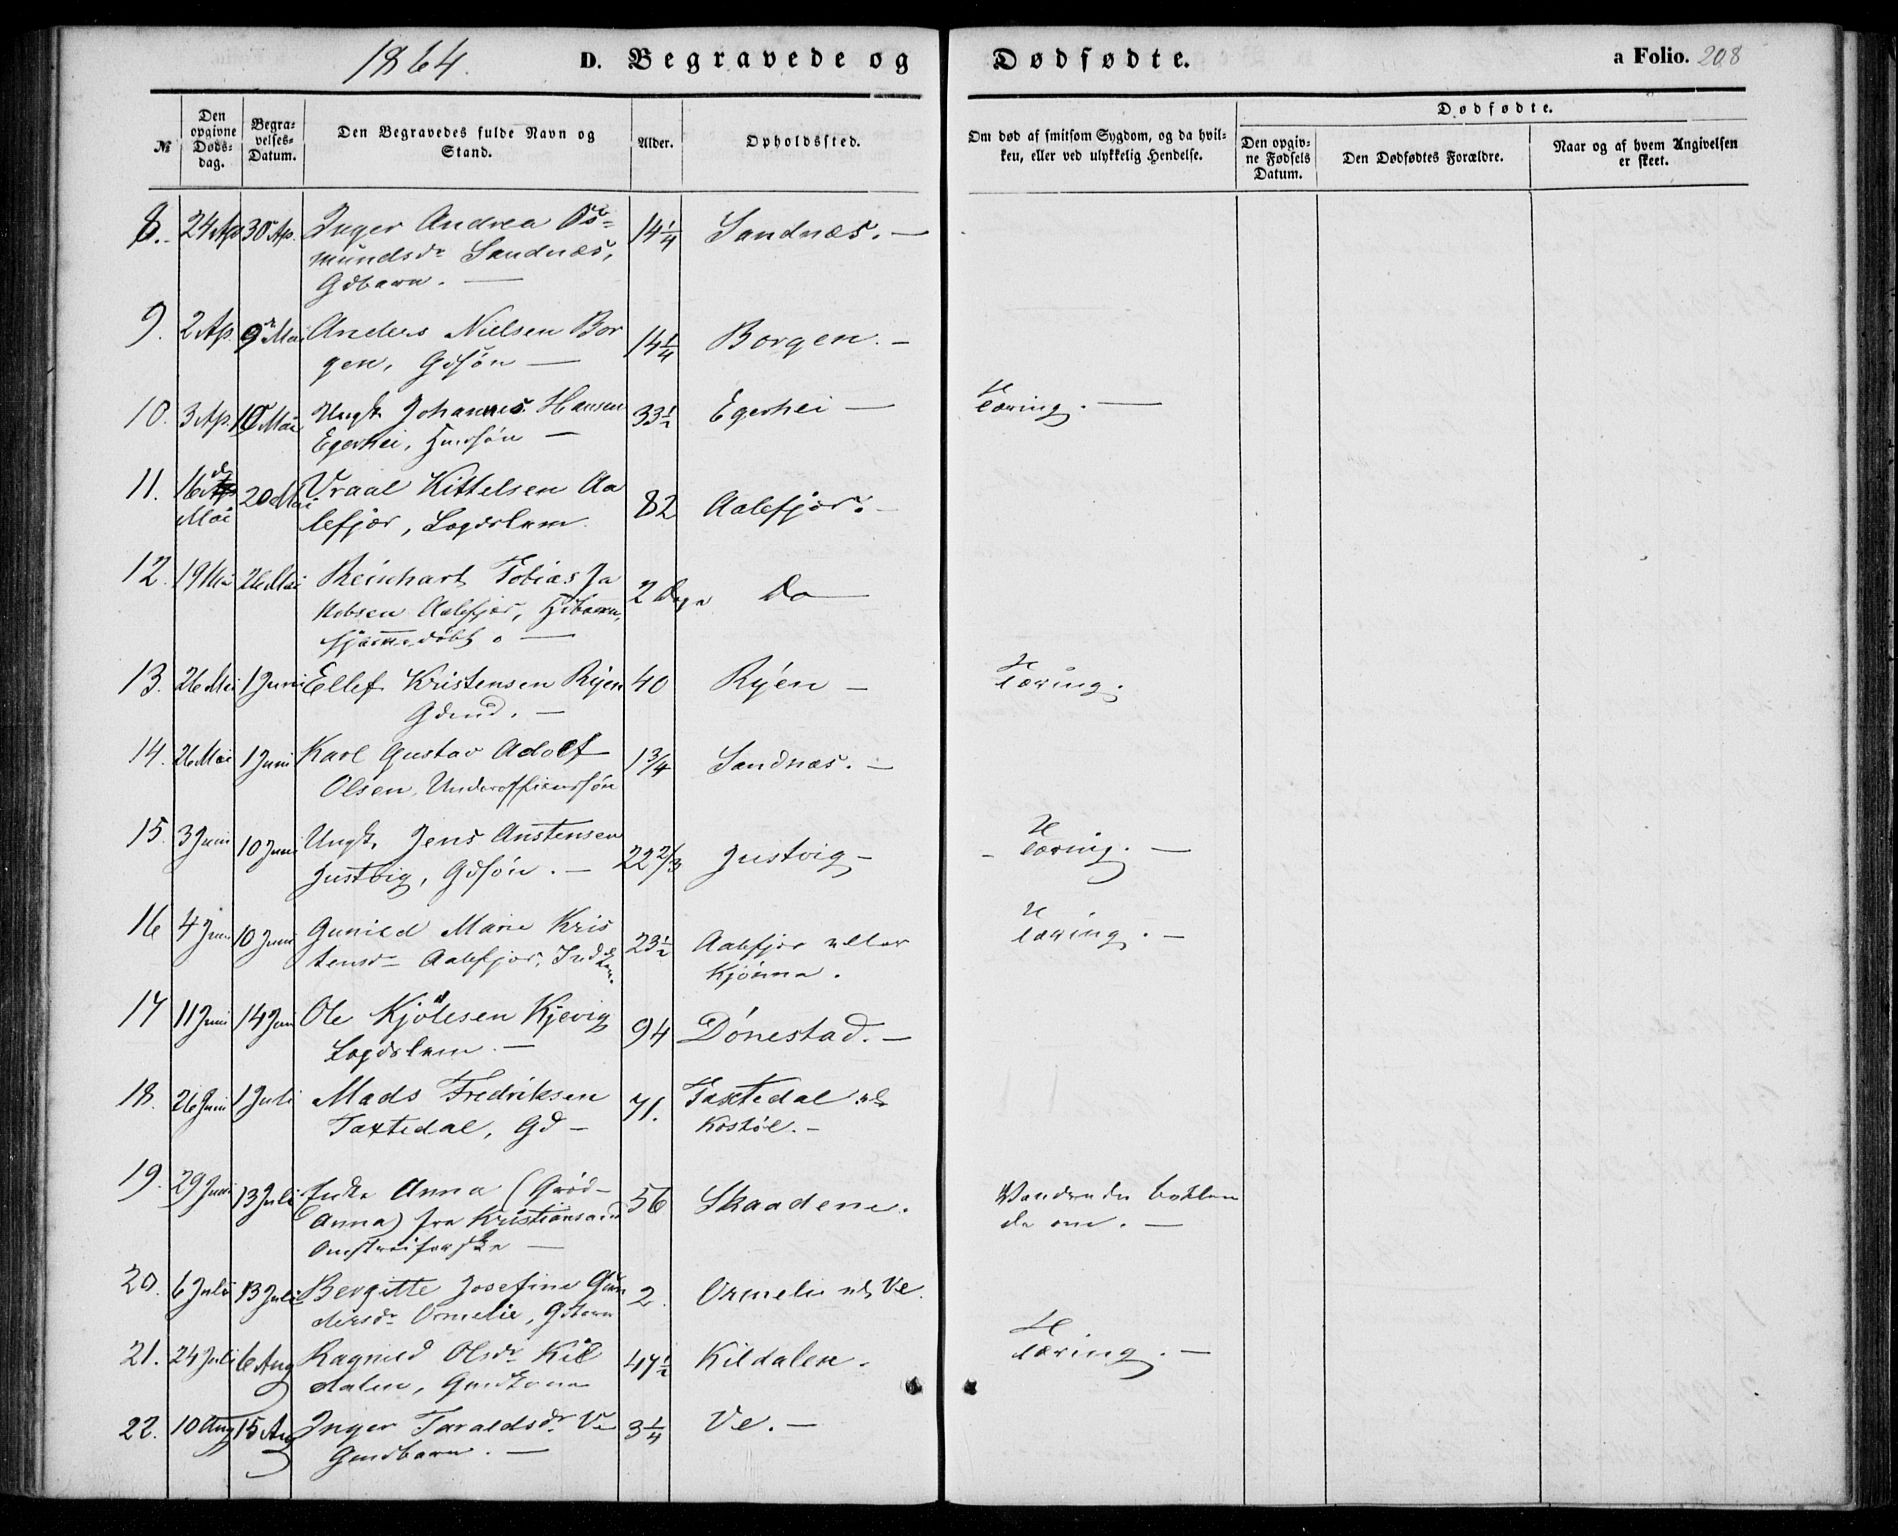 1864.
D. Begravede og Dødfødte.
a Folio. 208
№
Den opgivne Døds-dag.
Begra-velses-Datum.
Den Begravedes fulde Navn og Stand.
Alder.
Opholdssted.
Om død af smitsom Sygdom, og da hvil-ken, eller ved ulykkelig Hendelse.
Dødfødte.
Den opgiv-ne Fødsels Datum.
Den Dødfødtes Forældre.
Naar og af hvem Angivelsen er skeet.
8. 24 Ap 30 Ap. Inger Andrea Os= 14 1/4 Sandnæs. —
mundsdr Sandnæs,
Gdbarn. —
9. 2 Ap. 9 Mai Anders Nielsen Bor 14 1/4 Borgen. —
gen, Gdsøn —
10. 3 Ap. 10 Mai Ungk. Johannes Hansen 33 1/2 Egerhei — Tæring. —
Egerhei, Hmdsøn —
11. 16 Mai 20 Mai Vraal Kittelsen Aa 82 Aalefjær. —
lefjær, Lægdslem.
12. 19 Mai 26 Mai Reinhart Tobias Ja 2 Dage Do —
kobsen Aalefjær, Hdbarn,
hjemmedøbt. —
13. 26 Mai 1 Juni Ellef Kristensen Ryen 40 Ryen — Tæring.
Gdmd. —
14. 26 Mai 1 Juni Karl Gustav Adolf 1 3/4 Sandnæs. —
Olsen, Underofficerssøn
15. 3 Juni 10 Juni Ungk. Jens Anstensen 22 2/3 Justvig — Tæring. —
Justvig, Gdsøn. —
16 4 Juni 10 Juni Gunild Marie Kris 23 1/2 Aalefjær eller Tæring. —
tensdr Aalefjær, Kjønna.
17 11 Juni 14 Juni Ole Kjølesen Kjevig 94 Dønestad. —
Lægdslem. —
18. 26 Juni 1 Juli Mads Fredriksen 71. Taxtedal
Taxtedal, Gd — Kostøl. —
19. 29 Juni 13 Juli Enke Anna (Grød- 56 Skaadene. Vandrende Betlen
Anna) fra Kristiansand de —
Omstreiferske —
20. 6 Juli 13 Juli Bergitte Josefine Gun 2. Ormelie Ve.
dersdr Ormelie, Gdbarn
21. 24 Juli 6 Aug Ragnild Olsdr Kil 47 1/2 Kildalen. Tæring. —
dalen, Gmdkone
22. 10 Aug 15 Aug Inger Taraldsdr Ve 3 1/4 Ve. —
Gmdbarn. —